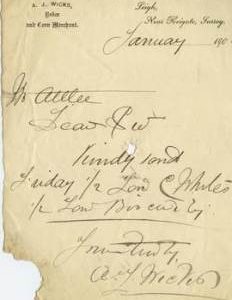 A. J. WICKS,
Baker
and Corn Merchant.
Leigh,
Near Reigate, Surrey.
January 190
Mr Attlee
Dear Sir
Kindly send
Friday 1/2 Ton C Whites
1/2 Ton Biscuits
Yours Truly
A J Wicks